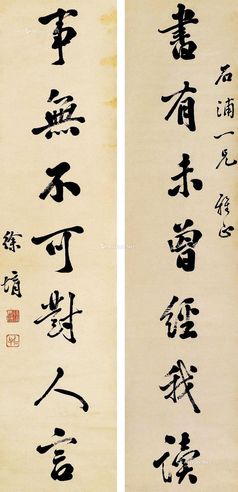 石浦一兄 雅正
書有未曾經我读
事無不可對人言
徐堉